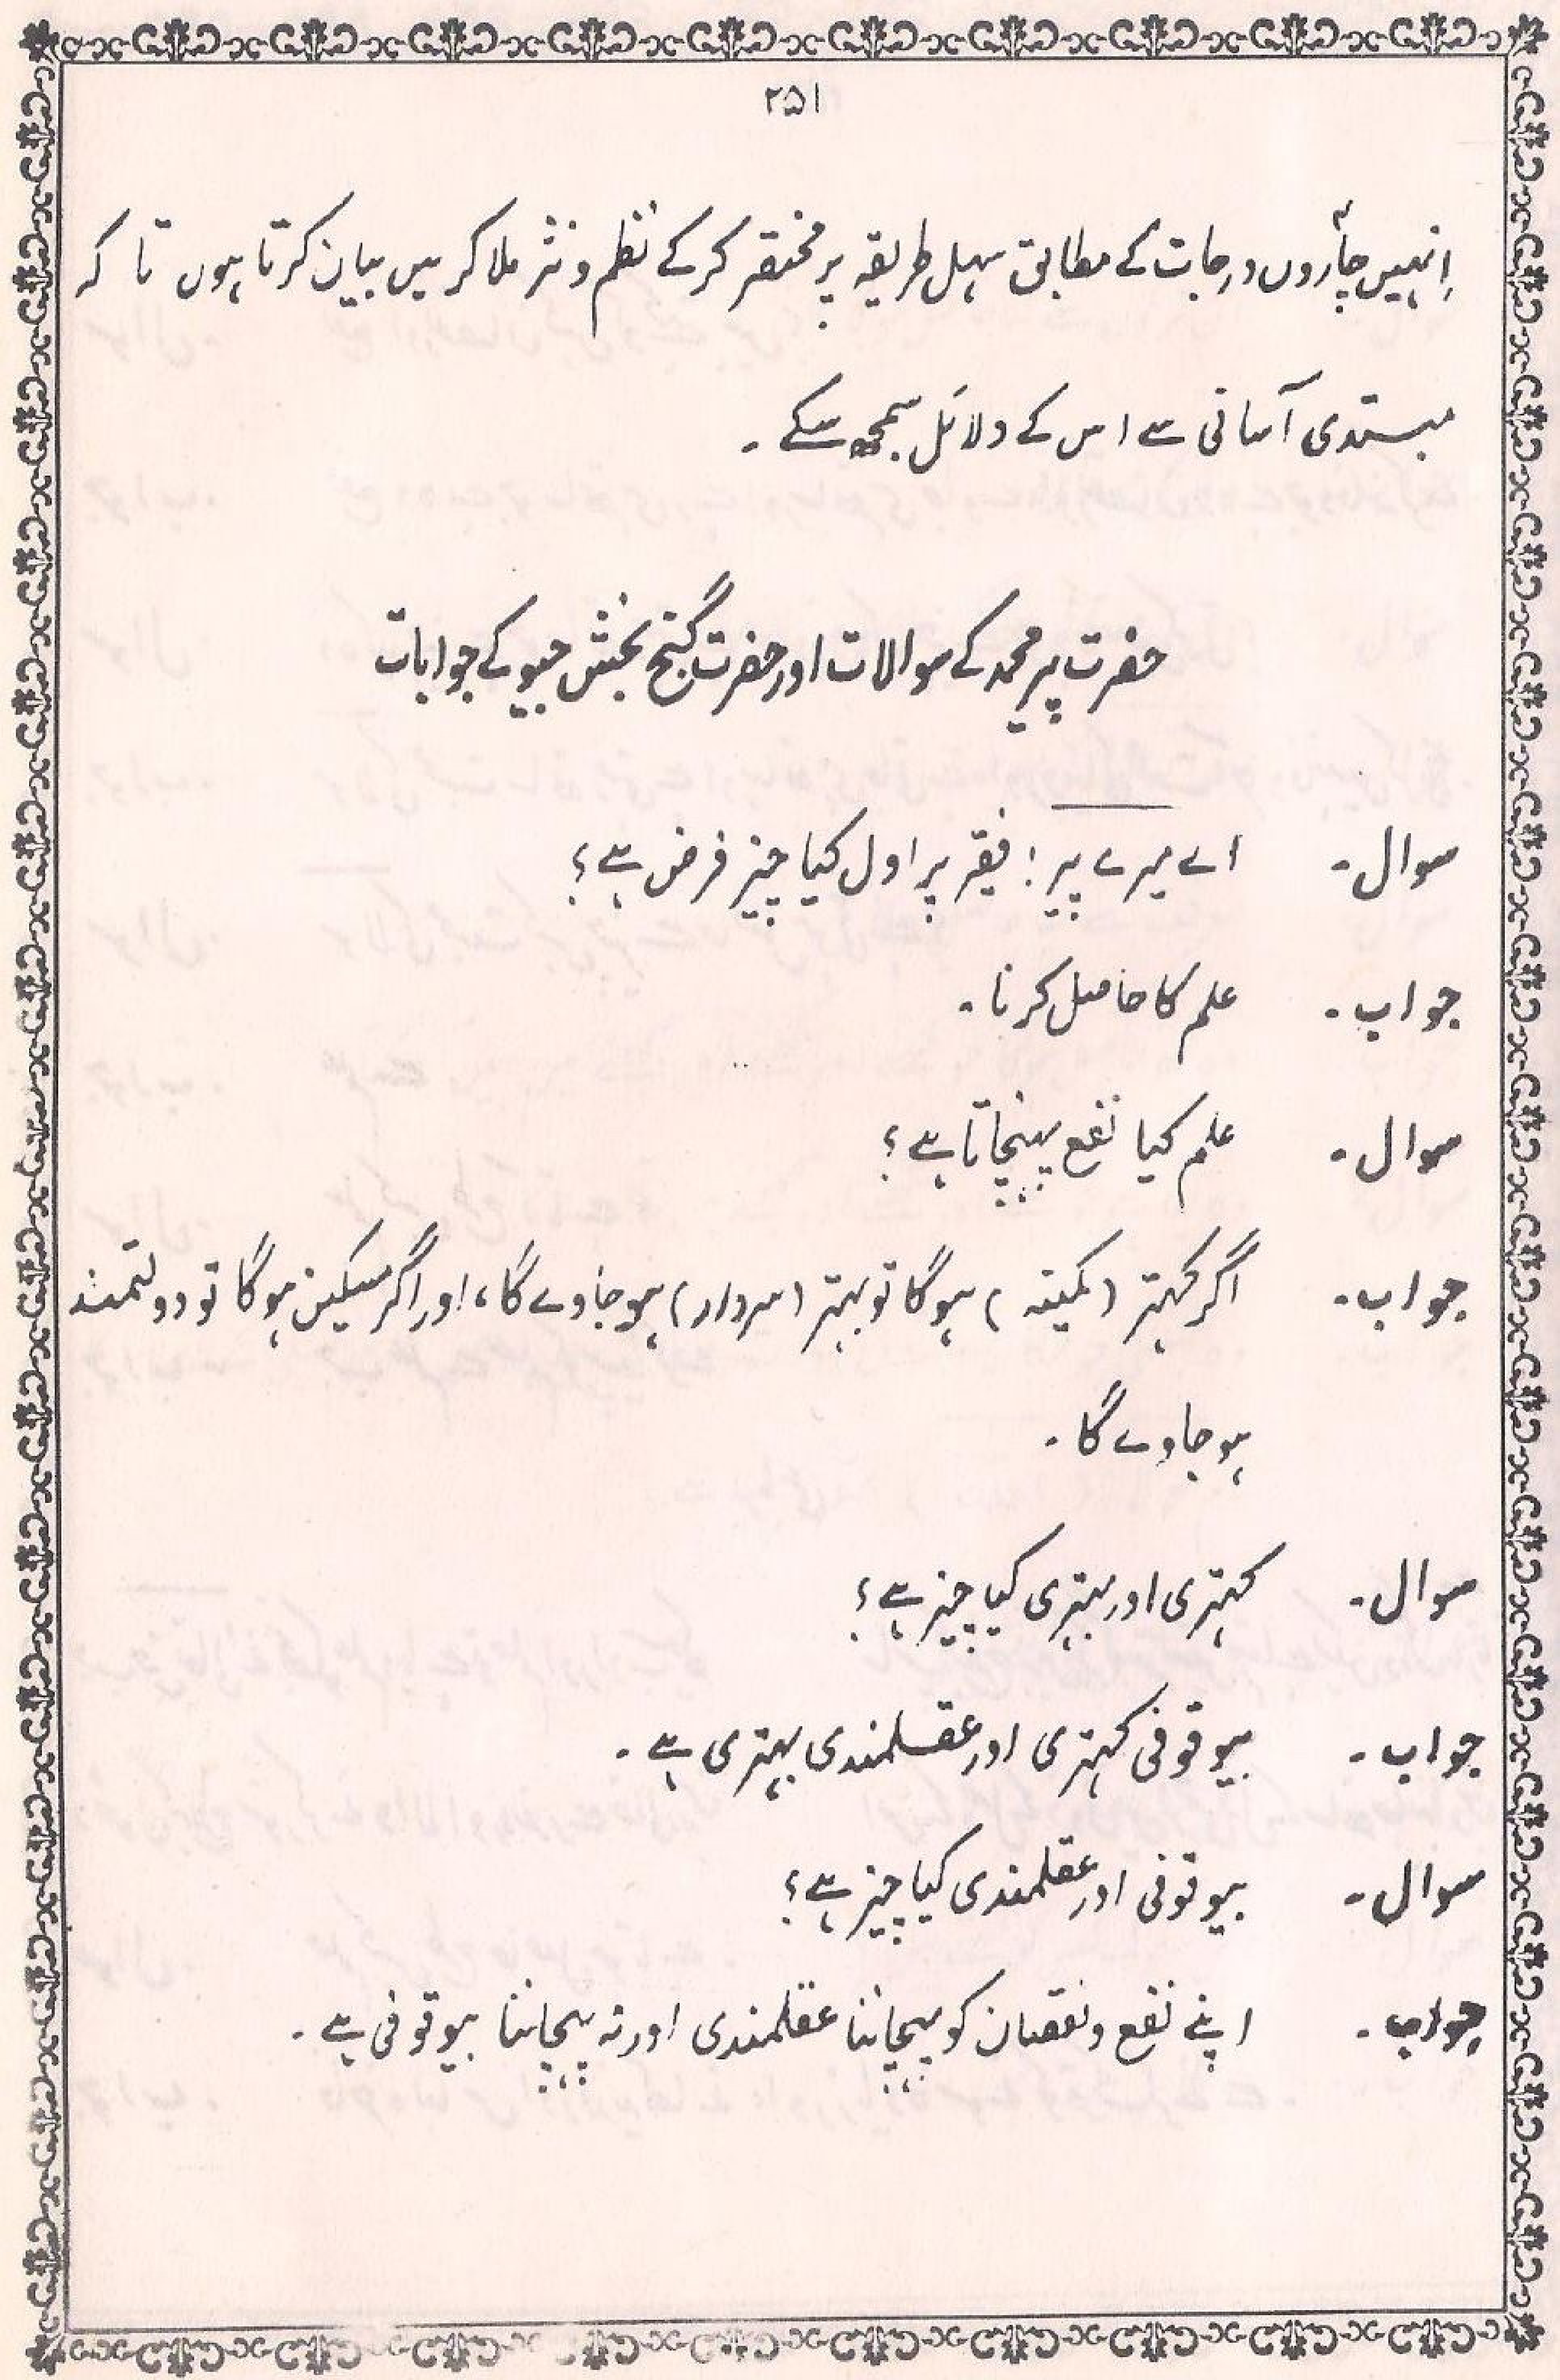 ۲۵۱
اِنہیں چاروں درجات کے مطابق سہل طریقہ پر مختصر کر کے نظم و نثر ملا کر میں بیان کرتا ہوں تا کہ
مبتدی آسانی سے اس کے دلائل سمجھ سکے ۔
حضرت پیر محمد کے سوالات اور حضرت گنج بخش جیو کے جوابات
سوال ۔ اے میرے پیر! فقیر پر اول کیا چیز فرض ہے؟
جواب ۔ علم کا حاصل کرنا ۔
سوال ۔ علم کیا نفع پہنچاتا ہے؟
جواب ۔ اگر کہتر (کمینہ) ہوگا تو بہتر (سردار) ہو جاوے گا، اور اگر مسکین ہوگا تو دولتمند
ہو جاوے گا ۔
سوال ۔ کہتری اور بہتری کیا چیز ہے؟
جواب ۔ بیوقوفی کہتری اور عقلمندی بہتری ہے ۔
سوال ۔ بیوقوفی اور عقلمندی کیا چیز ہے؟
جواب ۔ اپنے نفع و نقصان کو پہچاننا عقلمندی اور نہ پہچاننا بیوقوفی ہے ۔